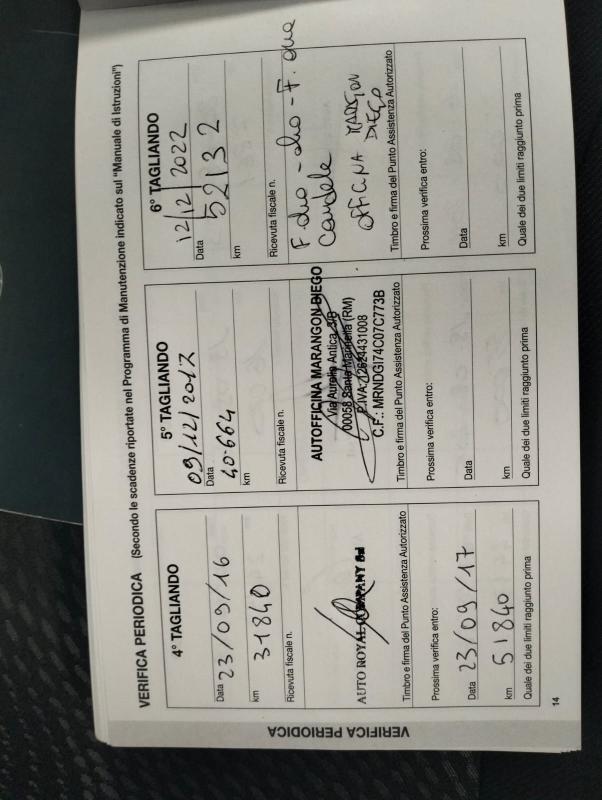 VERIFICA PERIODICA (Secondo le scadenze riportate nel Programma di Manutenzione indicato sul "Manuale di Istruzioni")
4° TAGLIANDO
Data 23/09/16
km 31840
Ricevuta fiscale n.
AUTO ROYAL COMPANY Srl
Timbro e firma del Punto Assistenza Autorizzato
Prossima verifica entro:
Data 23/09/17
km 51840
Quale dei due limiti raggiunto prima
5° TAGLIANDO
09/12/2017
Data
40.664
km
Ricevuta fiscale n.
AUTOFFICINA MARANGON DIEGO
Via Aurelia Antica, 3/B
00058 Santa Marinella (RM)
P.IVA: 12624431008
C.F.: MRNDGI74C07C773B
Timbro e firma del Punto Assistenza Autorizzato
Prossima verifica entro:
Data
km
Quale dei due limiti raggiunto prima
6° TAGLIANDO
12/12/2022
Data
52132
km
Ricevuta fiscale n.
F. olio - olio - F. aria
Candele
OFFICINA
DIEGO
Timbro e firma del Punto Assistenza Autorizzato
Prossima verifica entro:
Data
km
Quale dei due limiti raggiunto prima
14
VERIFICA PERIODICA